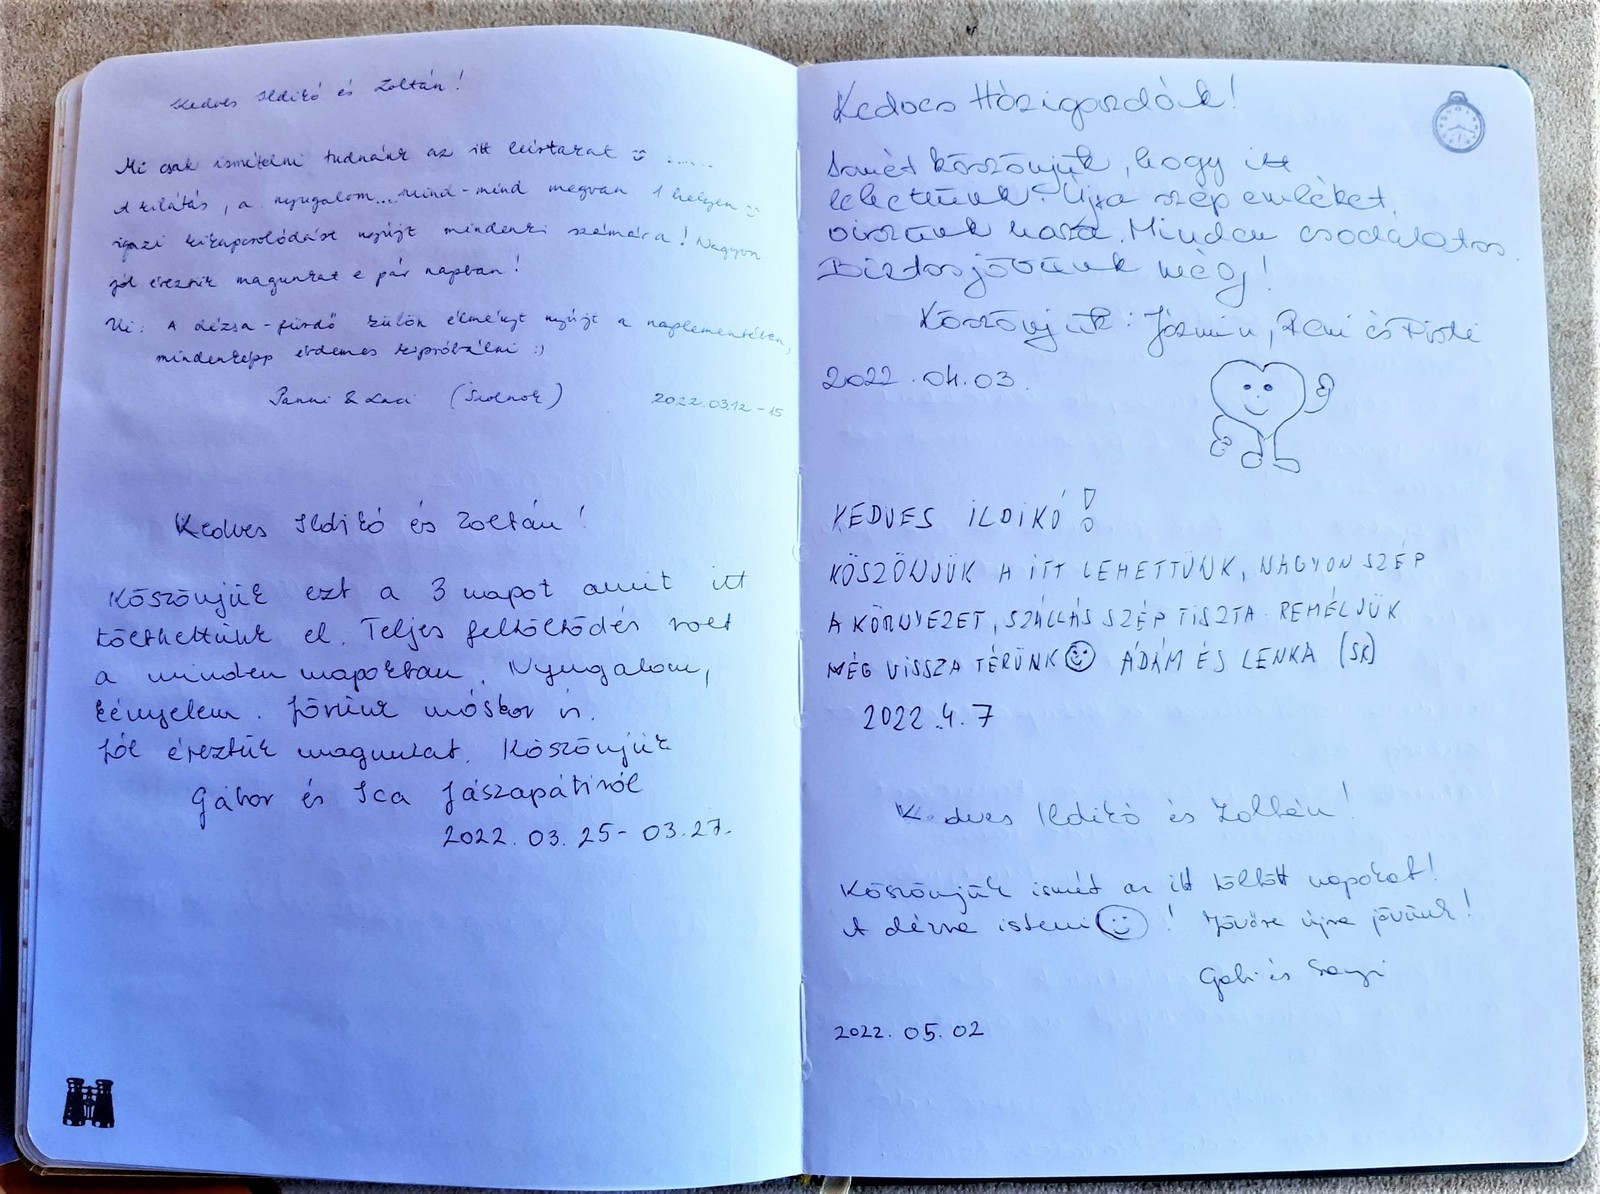 Kedves Ildikó és Zoltán!
Mi csak ismételni tudnánk az itt leírtakat :) ......
A kilátás, a nyugalom... mind-mind megvan 1 helyen :)
igazi kikapcsolódást nyújt mindenki számára! Nagyon
jól éreztük magunkat e pár napban!
Ui: A dézsa-fürdő külön élményt nyújt a naplementében,
mindenképp érdemes kipróbálni :)
Panni & Laci (Szolnok) 2022.03.12-15
Kedves Ildikó és Zoltán!
Köszönjük ezt a 3 napot amit itt
tölthettünk el. Teljes feltöltődés volt
a minden napokban. Nyugalom,
kényelem. Jövünk máskor is.
Jól éreztük magunkat. Köszönjük
Gábor és Ica Jászapátiról
2022. 03. 25- 03.27.
Kedves Házigazdák!
Ismét köszönjük, hogy itt
lehettünk. Újra szép emléket
viszünk haza. Minden csodálatos.
Biztos jövünk még!
Köszönjük: Jázmin, Reni és Pisti
2022.04.03.
KEDVES ILDIKÓ!
KÖSZÖNJÜK H ITT LEHETTÜNK, NAGYON SZÉP
A KÖRNYEZET, SZÁLLÁS SZÉP TISZTA. REMÉLJÜK
MÉG VISSZA TÉRÜNK ÁDÁM ÉS LENKA (SK)
2022.4.7
Kedves Ildikó és Zoltán!
Köszönjük ismét az itt töltött napokat!
A dézsa isteni ! Jövőre újra jövünk!
Gabi és
2022.05.02